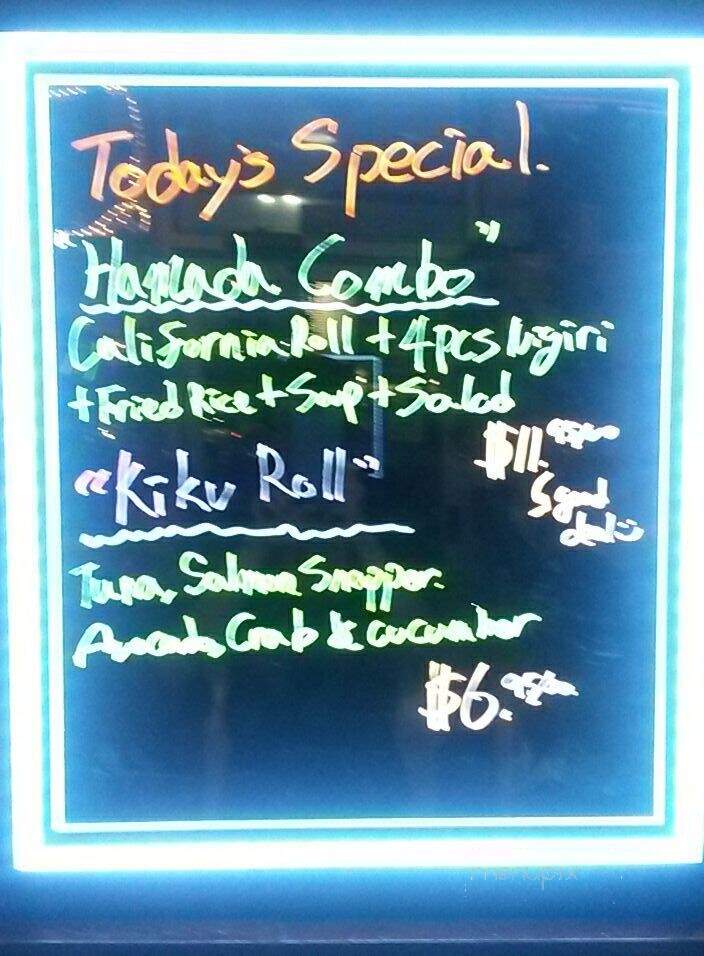 Today's Special.
"Hamada Combo"
California Roll + 4pcs Nigiri
+ Fried Rice + Soup + Salad
$11.95/00
good
deal
"Kiku Roll"
Tuna, Salmon Snapper.
Avocado, Crab & cucumber
$6.95/00
menupix